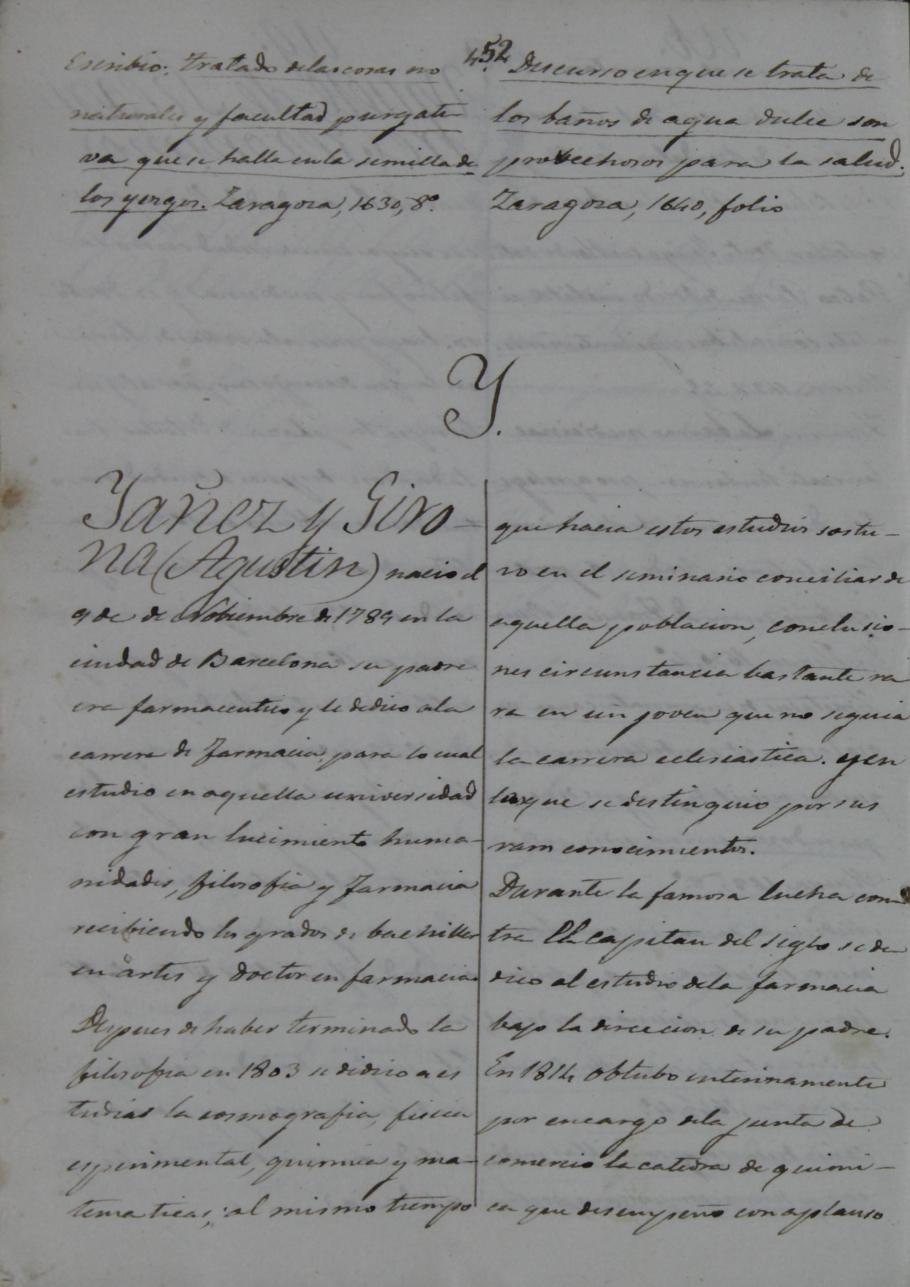 452
Escribio: Tratado de las cosas no
naturales y facultad purgati
va que se halla en la semilla de
los yezgos. Zaragoza, 1630, 8º.
Discurso en que se trata de
los baños de agua dulce son
provechosos para la salud.
Zaragoza, 1640, folio
Y.
Yañez y Giro-
na (Agustin) nacio el
9 de de Nobiembre de 1789 en la
ciudad de Barcelona su padre
era farmaceutico y le dedico a la
carrera de farmacia, para lo cual
estudio en aquella universidad
con gran lucimiento huma-
nidades, filosofia y farmacia
recibiendo los grados de bachiller
en artes y doctor en farmacia.
Despues de haber terminado la
filosofia en 1803 se dedico a es
tudiar la cosmografia, fisica
esperimental, quimica y ma-
tematicas; al mismo tiempo
que hacia estos estudios sostu-
vo en el seminario conciliar de
aquella poblacion, conclusio-
nes circunstancia bastante ra
ra en un joven que no seguia
la carrera eclesiastica. y en
las que se distinguio por sus
raros conocimientos.
Durante la famosa lucha con-
tra El Capitan del siglo se de-
dico al estudio de la farmacia
bajo la direccion de su padre.
En 1814 obtubo interinamente
por encargo de la junta de
comercio la catedra de quimi-
ca que desempeño con aplauso